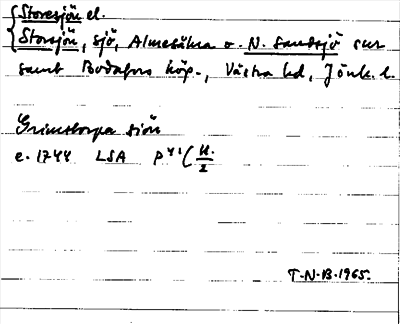 Storesjön el.
Storsjön, sjö, Almesåkra o. N. Sandsjö snr
samt Bodafors köp., Västra hd, Jönk. l.
Grimstorpa siön
e. 1744 LSA P 41 (11/2
T.N.B. 1965.